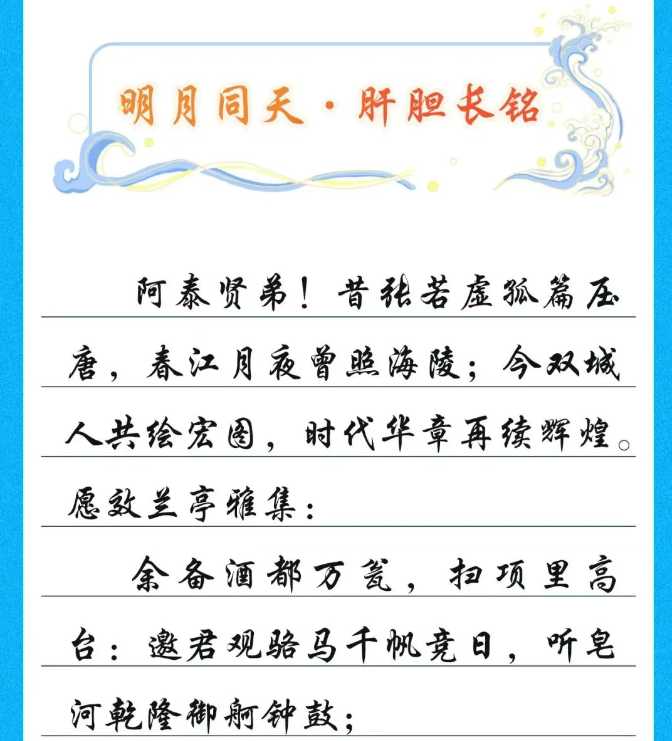 明月同天·肝胆长铭
阿泰贤弟！昔张若虚孤篇压
唐，春江月夜曾照海陵；今双城
人共绘宏图，时代华章再续辉煌。
愿效兰亭雅集：
余备酒都万瓮，扫项里高
台：邀君观骆马千帆竞日，听皂
河乾隆御舸钟鼓；